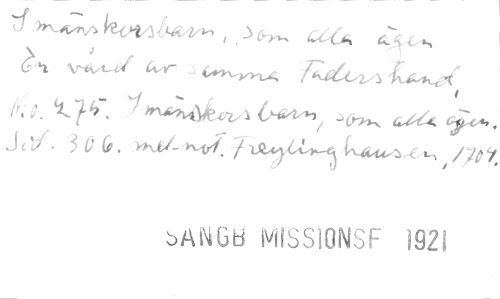 I mänskorsbarn, som alla ägen
En vård av samma Fadershand,
N.o. 275. I mänskorsbarn, som alla ägen.
Sid. 306. mel-not. Freylinghausen, 1704.
SANGB MISSIONSF 1921